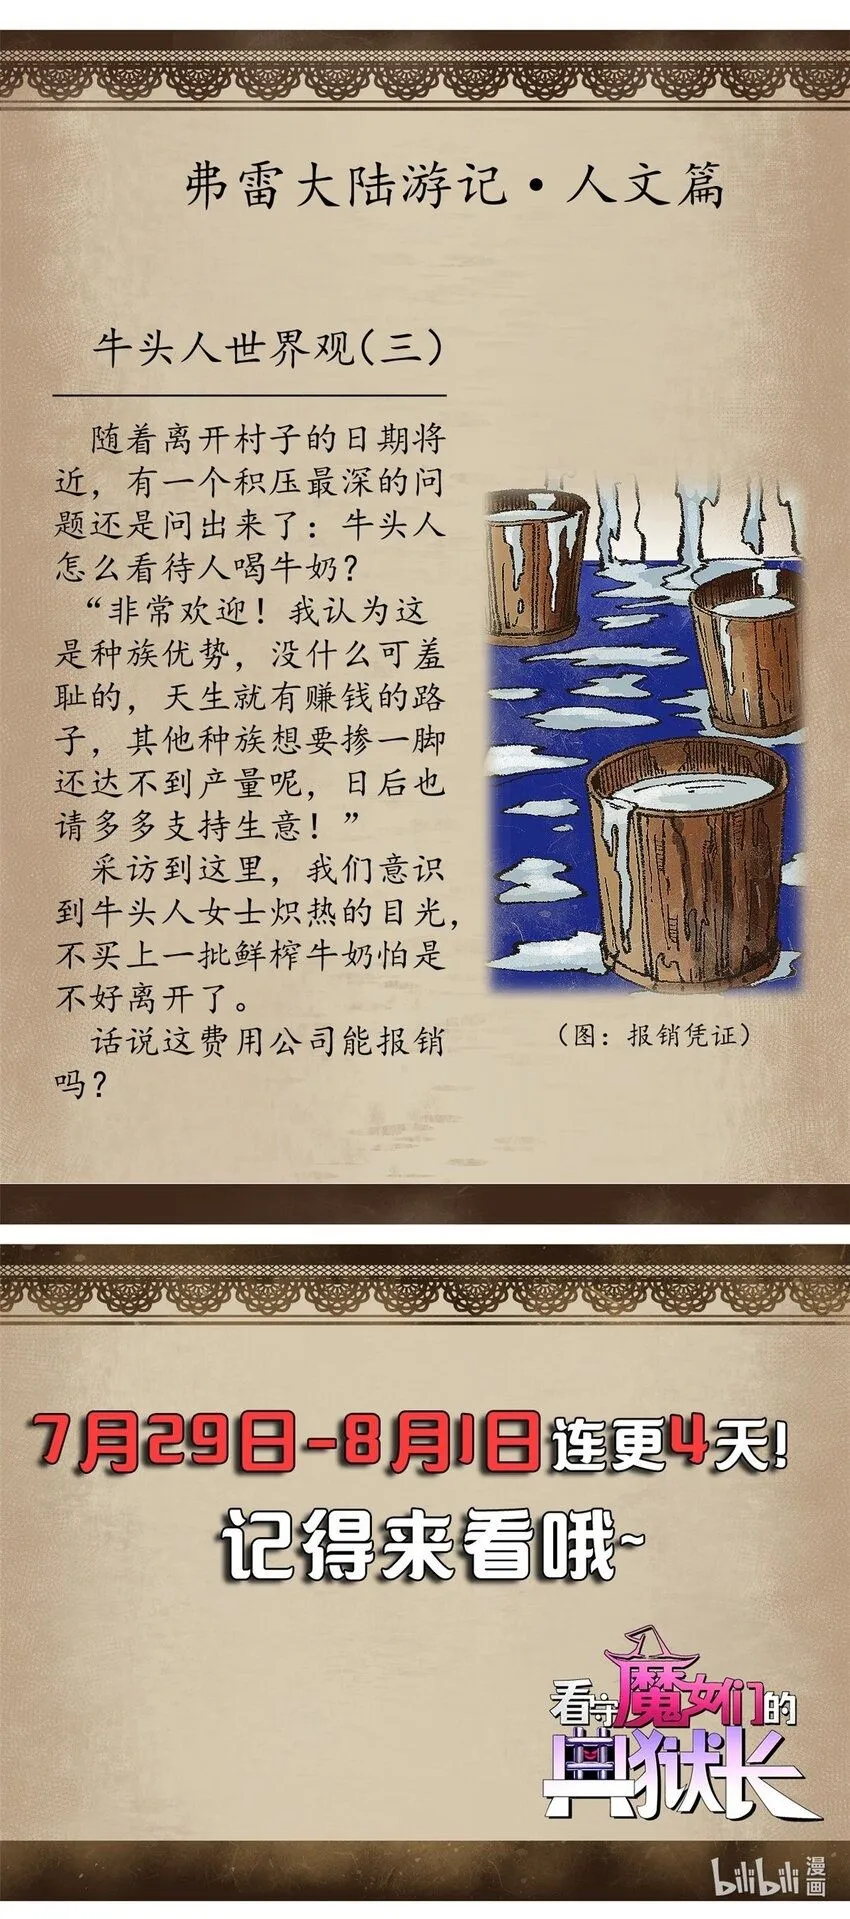 弗雷大陆游记·人文篇
牛头人世界观(三)
随着离开村子的日期将
近，有一个积压最深的问
题还是问出来了：牛头人
怎么看待人喝牛奶？
“非常欢迎！我认为这
是种族优势，没什么可羞
耻的，天生就有赚钱的路
子，其他种族想要掺一脚
还达不到产量呢，日后也
请多多支持生意！”
采访到这里，我们意识
到牛头人女士炽热的目光，
不买上一批鲜榨牛奶怕是
不好离开了。
话说这费用公司能报销
吗？
（图：报销凭证）
7月29日-8月1日连更4天!
记得来看哦~
看守魔女们的
典狱长
bilibili漫画